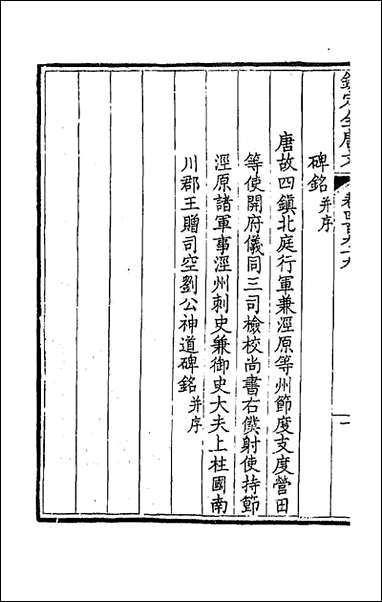 欽定全唐文 卷四百九十九 一
碑銘并序
唐故四鎮北庭行軍兼涇原等州節度支度營田
等使開府儀同三司檢校尚書右僕射使持節
涇原諸軍事涇州刺史兼御史大夫上柱國南
川郡王贈司空劉公神道碑銘并序